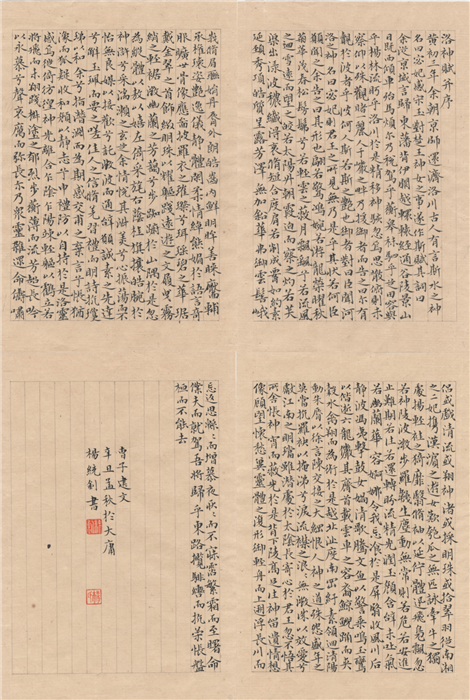 洛神賦并序
黄初三年余朝京師還濟洛川古人有言斯水之神
名曰宓妃感宋玉對楚王神女之事遂作斯賦其詞曰
余從京域言歸東藩背伊闕越轘轅經通谷陵景山
日既西傾車殆馬煩尔乃稅駕乎蘅皋秣駟乎芝田容與
乎楊林流眄乎洛川於是精移神駭忽焉思散俯則未
察仰以殊觀睹一麗人于巖之畔乃援御者而告之曰尔有
覿於彼者乎彼何人斯若斯之艷也御者對曰臣聞河
洛之神名曰宓妃則君王之所見無乃是乎其狀若何臣
願聞之余告之曰其形也翩若驚鴻婉若遊龍榮曜秋
菊華茂春松髣髴兮若輕雲之蔽月飄飖兮若流風
之迴雪遠而望之皎若太陽升朝霞迫而察之灼若芙
蕖出淥波穠纖得衷脩短合度肩若削成腰如約素
延頸秀項皓質呈露芳澤無加鉛華弗御雲髻
峩峩脩眉聯娟丹脣外朗皓齒内鮮明眸善睞靨輔
承權瓌姿艷逸儀靜體閑柔情綽態媚於語言奇
服曠世骨像應圖披羅衣之璀璨兮珥瑶碧之華琚
戴金翠之首飾綴明珠以耀軀踐遠遊之文履曳霧
綃之輕裾微幽蘭之芳藹兮步踟躕於山隅於是忽
焉縱體以遨以嬉左倚采旄右蔭桂旗攘皓腕於
神滸兮采湍瀨之玄芝余情悅其淑美兮心振蕩而不
怡無良媒以接歡兮託微波而通辭願誠素之先達
兮解玉珮而要之嗟佳人之信脩羌習禮而明詩抗瓊
珶以和余兮指潛淵而為期感交甫之棄言兮悵猶
豫而狐疑收和顔以靜志兮申禮防以自持於是洛靈
感焉徙倚彷徨神光離合乍陰乍陽竦輕軀以鶴立若
將飛而未翔踐椒塗之郁烈步蘅薄而流芳超長吟
以永慕兮聲哀厲而彌長尔乃衆靈雜遝命儔嘯
侣或戲清流或翔神渚或採明珠或拾翠羽從南湘
之二妃攜漢濱之遊女歎匏瓜之無匹詠牽牛之獨
處揚輕袿之猗靡翳脩袖以延佇體迅飛鳧飄忽
若神陵波微步羅襪生塵動無常則若危若安進
止難期若往若還轉眄流精光潤玉顔含辭未吐氣
若幽蘭華容婀娜令我忘飡於是屏翳收風川后
靜波馮夷擊鼓女媧清歌騰文魚以警乘鳴玉鸞
以偕逝六龍儼其齊首載雲車之容裔鯨鯢踊而夾
轂水禽翔而為衛於是越北沚度南岡紆素領迴清陽
動朱脣以徐言陳交接之大綱恨人神之道殊怨盛年之
莫當抗羅袂以掩涕兮淚流襟之浪浪悼良會之永絕兮哀一逝而異鄉無微情以效愛兮
獻江南之明璫雖潛處於太陰長寄心於君王忽不悟其
所舍悵神宵而蔽光於是背下陵高足往神留遺情想
像顧望懷愁冀靈體之復形御輕舟而上遡浮長川而
忘返思緜緜而增慕夜耿耿而不寐霑繁霜而至曙命
僕夫而就駕吾將歸乎東路攬騑轡而抗策悵盤
桓而不能去
曹子建文
辛丑孟秋於大庸
楊繞釗書